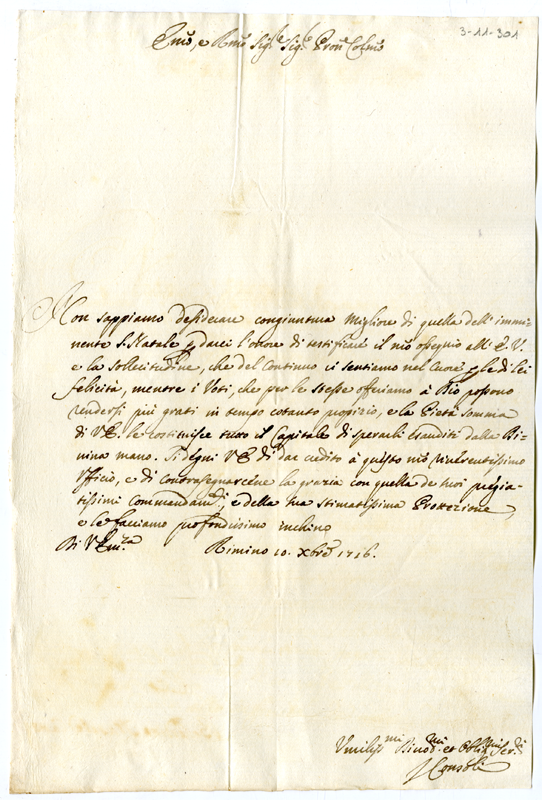 3-11-301
Emo, e Rmo Sigre Sigre Pron Colmo
Non sappiamo desiderare congiuntura migliore di quella dell' immi-
nente S. Natale p darci l'onore di testificare il nro ossequio all' E. V.
e la sollecitudine, che del continuo ci sentiamo nel Cuore p le di lei
felicità, mentre i Voti, che per le stesse offriamo à Dio possono
rendersi più grati in tempo cotanto propizio, e la Pietà somma
di V. E. le costituisce tutto il Capitale di sperarli esauditi dalla Di-
vina mano. Si degni V. E. di dar credito à questo nro riverentissimo
Ufficio, e di contrasegnarcene la grazia con quella de suoi pregia-
tissimi commandamti, e della sua stimatissima Protezione,
e le facciamo profondissimo inchino
Di V. Emza Rimino 10. Xbre 1716.
Umiliss mi Divod mi et Obbl mi Ser.di
I Consoli